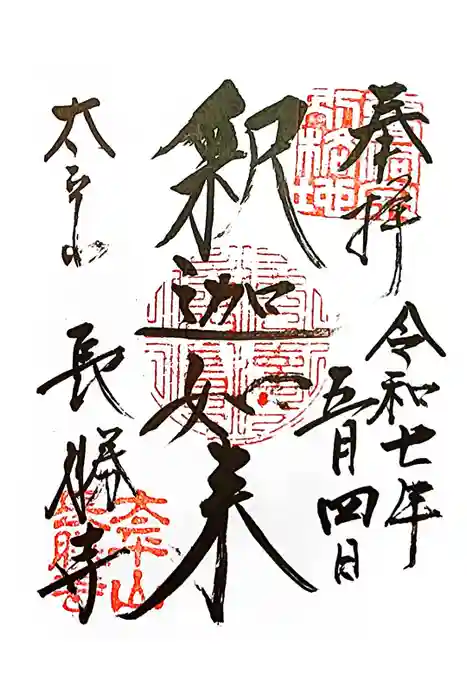 奉拝
令和七年
五月四日
釈迦如来
太平山
長勝寺
太平山
長勝寺